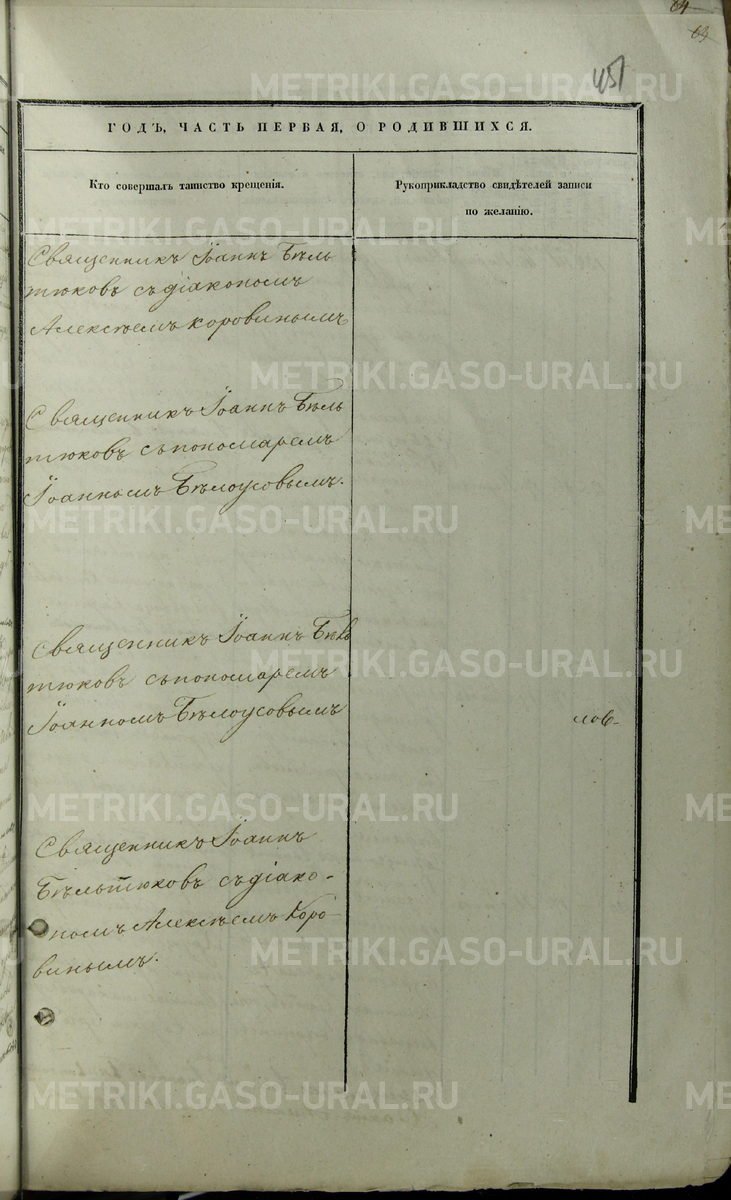 64
63
451
ГОДЪ, ЧАСТЬ ПЕРВАЯ, О РОДИВШИХСЯ.
Кто совершалъ таинство крещенія.
Рукоприкладство свидѣтелей записи
по желанію.
Священникъ Іоаннъ Бѣль
тюковъ съ діакономъ
Алексѣемъ Коровинымъ
Священникъ Іоаннъ Бѣль
тюковъ съ пономаремъ
Іоанномъ Бѣлоусовымъ.
Священникъ Іоаннъ Бѣль
тюковъ съ пономаремъ
Іоанномъ Бѣлоусовымъ
лов-
Священникъ Іоаннъ
Бѣльтюковъ съ діако-
номъ Алексѣемъ Коро
винымъ.
METRIKI.GASO-URAL.RU